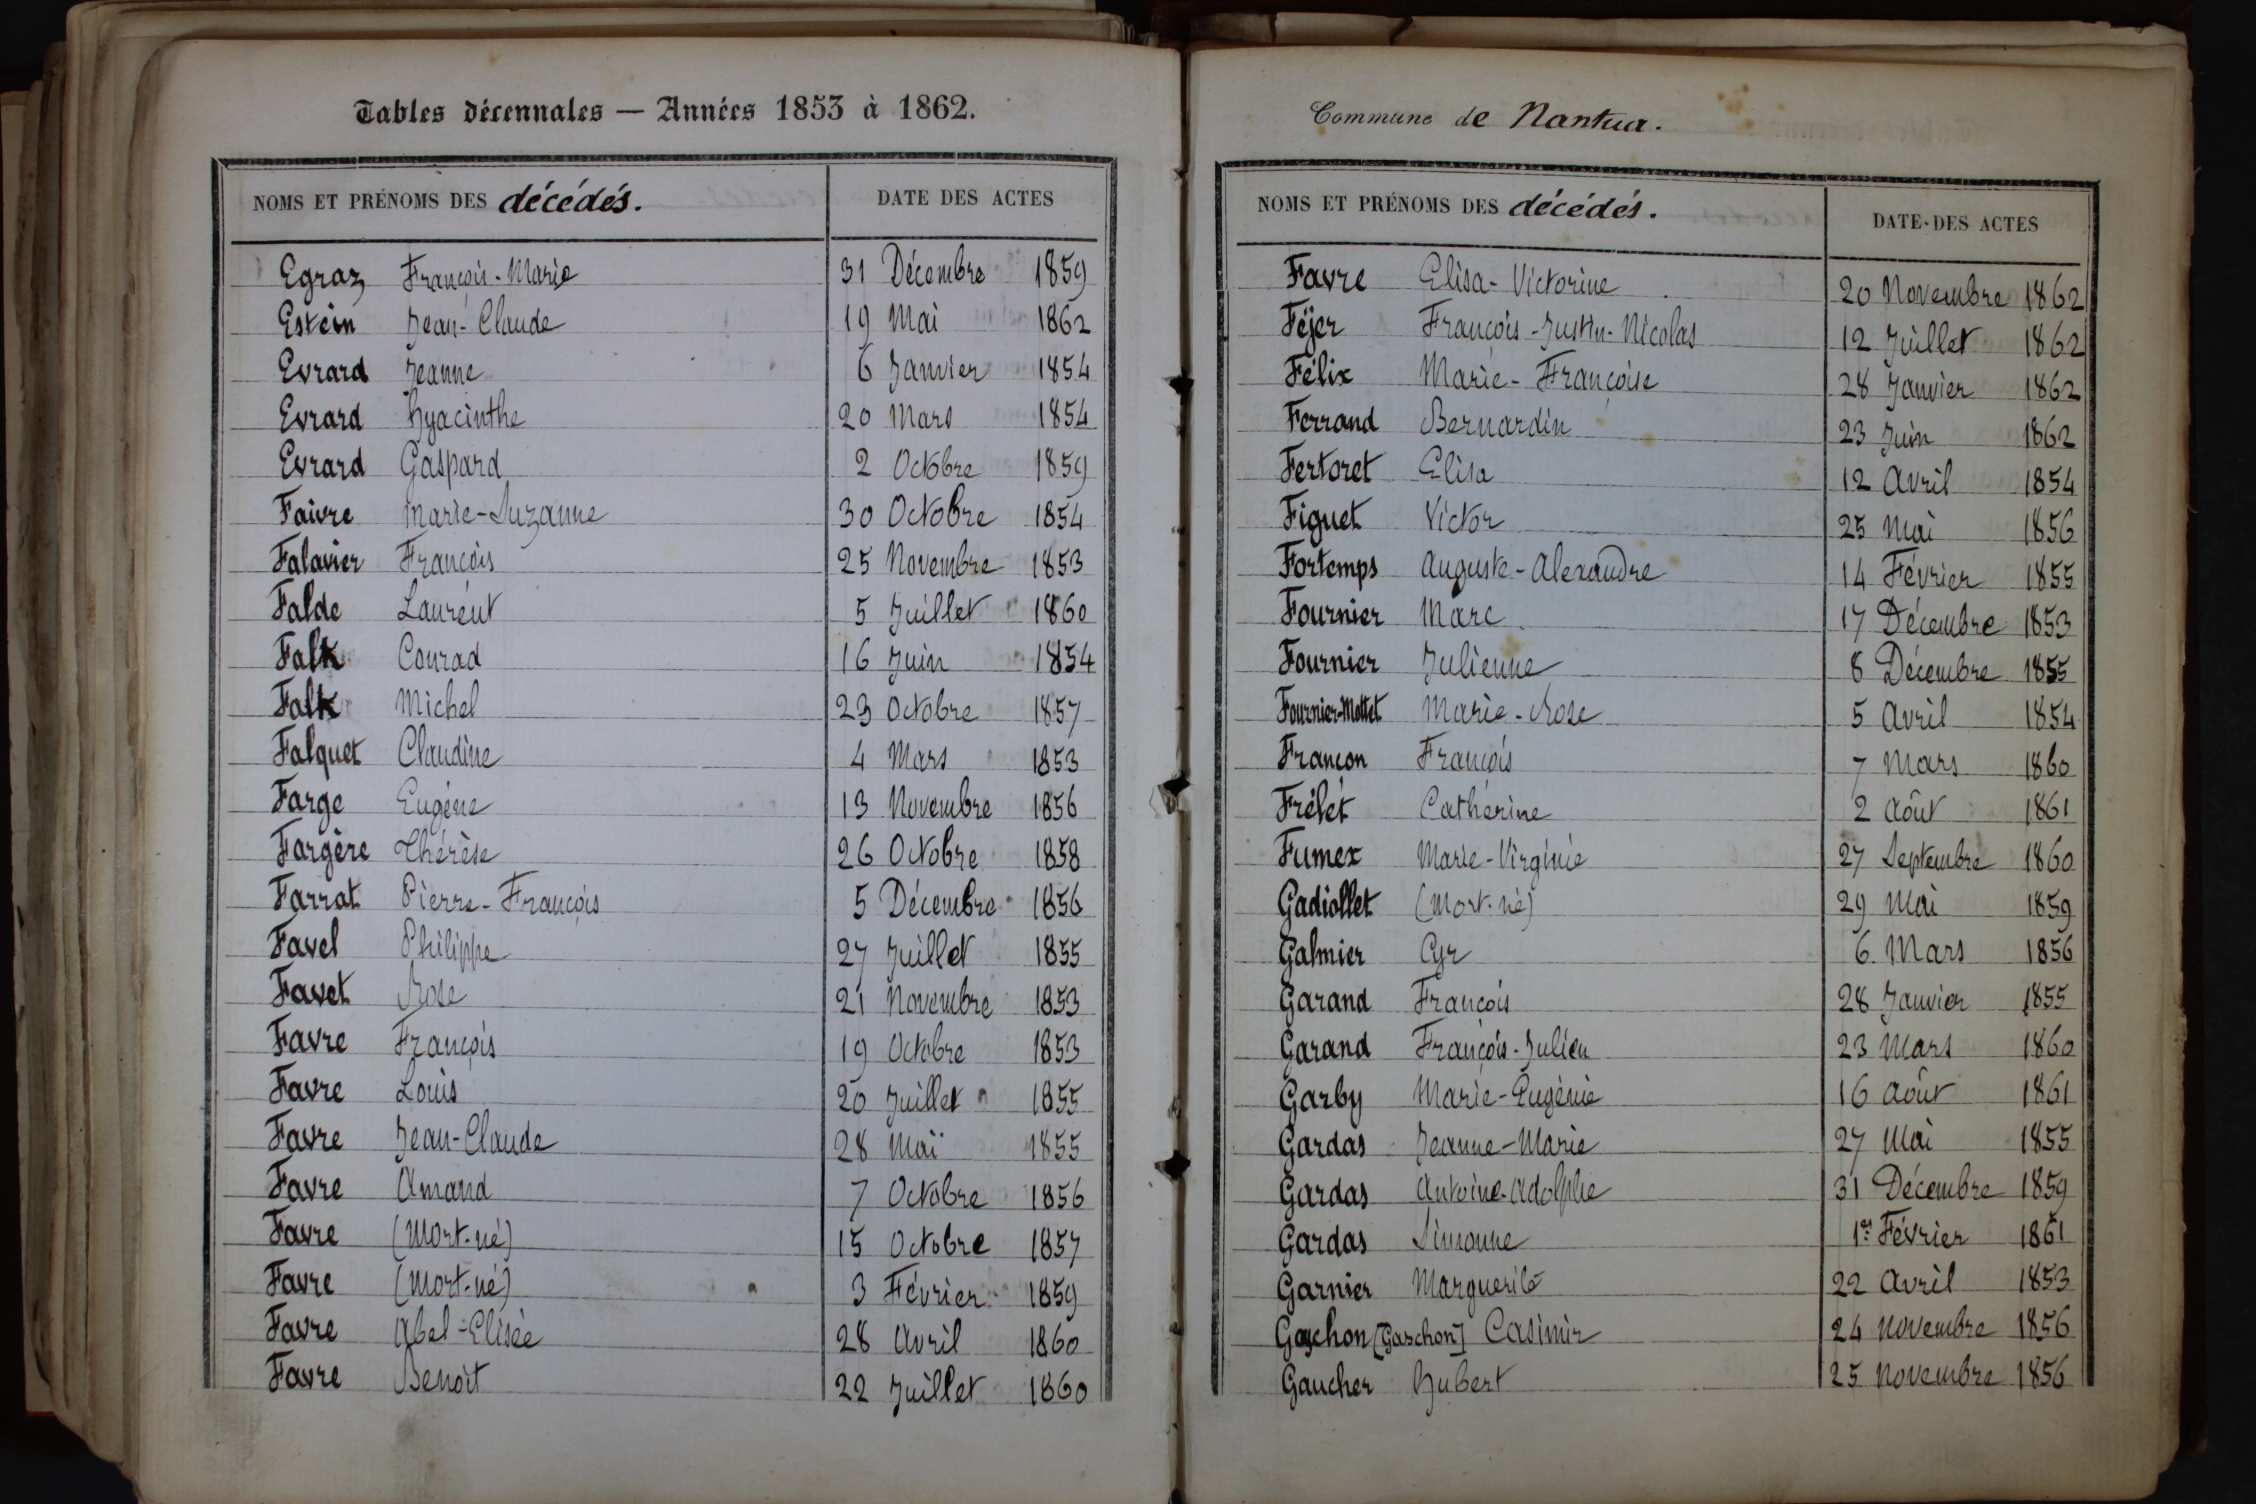 Tables décennales — Années 1853 à 1862.
NOMS ET PRÉNOMS DES décédés. DATE DES ACTES
Egraz François-Marie 31 Décembre 1859
Estein Jean-Claude 19 Mai 1862
Evrard Jeanne 6 Janvier 1854
Evrard Hyacinthe 20 Mars 1854
Evrard Gaspard 2 Octobre 1859
Faivre Marie-Suzanne 30 Octobre 1854
Falavier François 25 Novembre 1853
Falde Laurent 5 Juillet 1860
Falk Conrad 16 Juin 1854
Falk Michel 23 Octobre 1857
Falquet Claudine 4 Mars 1853
Farge Eugène 13 Novembre 1856
Fargère Thérèse 26 Octobre 1858
Farrat Pierre-François 5 Décembre 1856
Favel Philippe 27 Juillet 1855
Favet Rose 21 Novembre 1853
Favre François 19 Octobre 1853
Favre Louis 20 Juillet 1855
Favre Jean-Claude 28 Maï 1855
Favre Amand 7 Octobre 1856
Favre (Mort-né) 15 Octobre 1857
Favre (Mort-né) 3 Février 1859
Favre Abel-Elisée 28 Avril 1860
Favre Benoît 22 Juillet 1860
Commune de Nantua.
NOMS ET PRÉNOMS DES décédés. DATE DES ACTES
Favre Elisa-Victorine 20 Novembre 1862
Féjer François-Justin-Nicolas 12 Juillet 1862
Félix Marie-Françoise 28 Janvier 1862
Ferrand Bernardin 23 Juin 1862
Fertoret Elisa 12 Avril 1854
Figuet Victor 25 Mai 1856
Fortemps Auguste-Alexandre 14 Février 1855
Fournier Marc 17 Décembre 1853
Fournier Julienne 8 Décembre 1855
Fournier-Mottet Marie-Rose 5 Avril 1854
Françon François 7 Mars 1860
Frélét Cathérine 2 Aôut 1861
Fumex Marie-Virginie 27 Septembre 1860
Gadiollet (Mort-né) 29 Mai 1859
Galmier Cyr 6 Mars 1856
Garand François 28 Janvier 1855
Garand François-Julien 23 Mars 1860
Garby Marie-Eugénie 16 Aôut 1861
Gardas Jeanne-Marie 27 Mai 1855
Gardas Antoine-Adolphe 31 Décembre 1859
Gardas Simonne 1er Février 1861
Garnier Marguerite 22 Avril 1853
Gaschon [Gaschon] Casimir 24 Novembre 1856
Gaucher Hubert 25 Novembre 1856